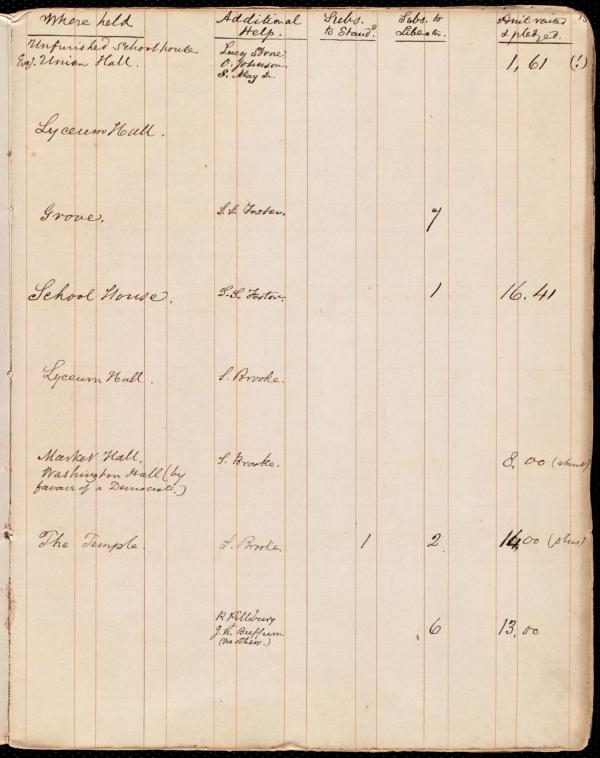 Where held Additional Help. Subs. to Stand<sup>d</sup>. Subs. to Liberator. Am't raised & pledged.
Unfinished School house. Lucy Stone.
Eve). Union Hall. O. Johnson. 1,61 (!)
S. May Jr.
Lyceum Hall.
Grove. S. S. Foster. 7
School House. S. S. Foster. 1 16.41
Lyceum Hall. S. Brooke.
Market Hall. S. Brooke. 8.00 (about)
Washington Hall (by
favour of a Democrat.)
The Temple. S. Brooke. 1 2 14,00 (plus)
P. Pillsbury
J. N. Buffum 6 13.00
(no others.)